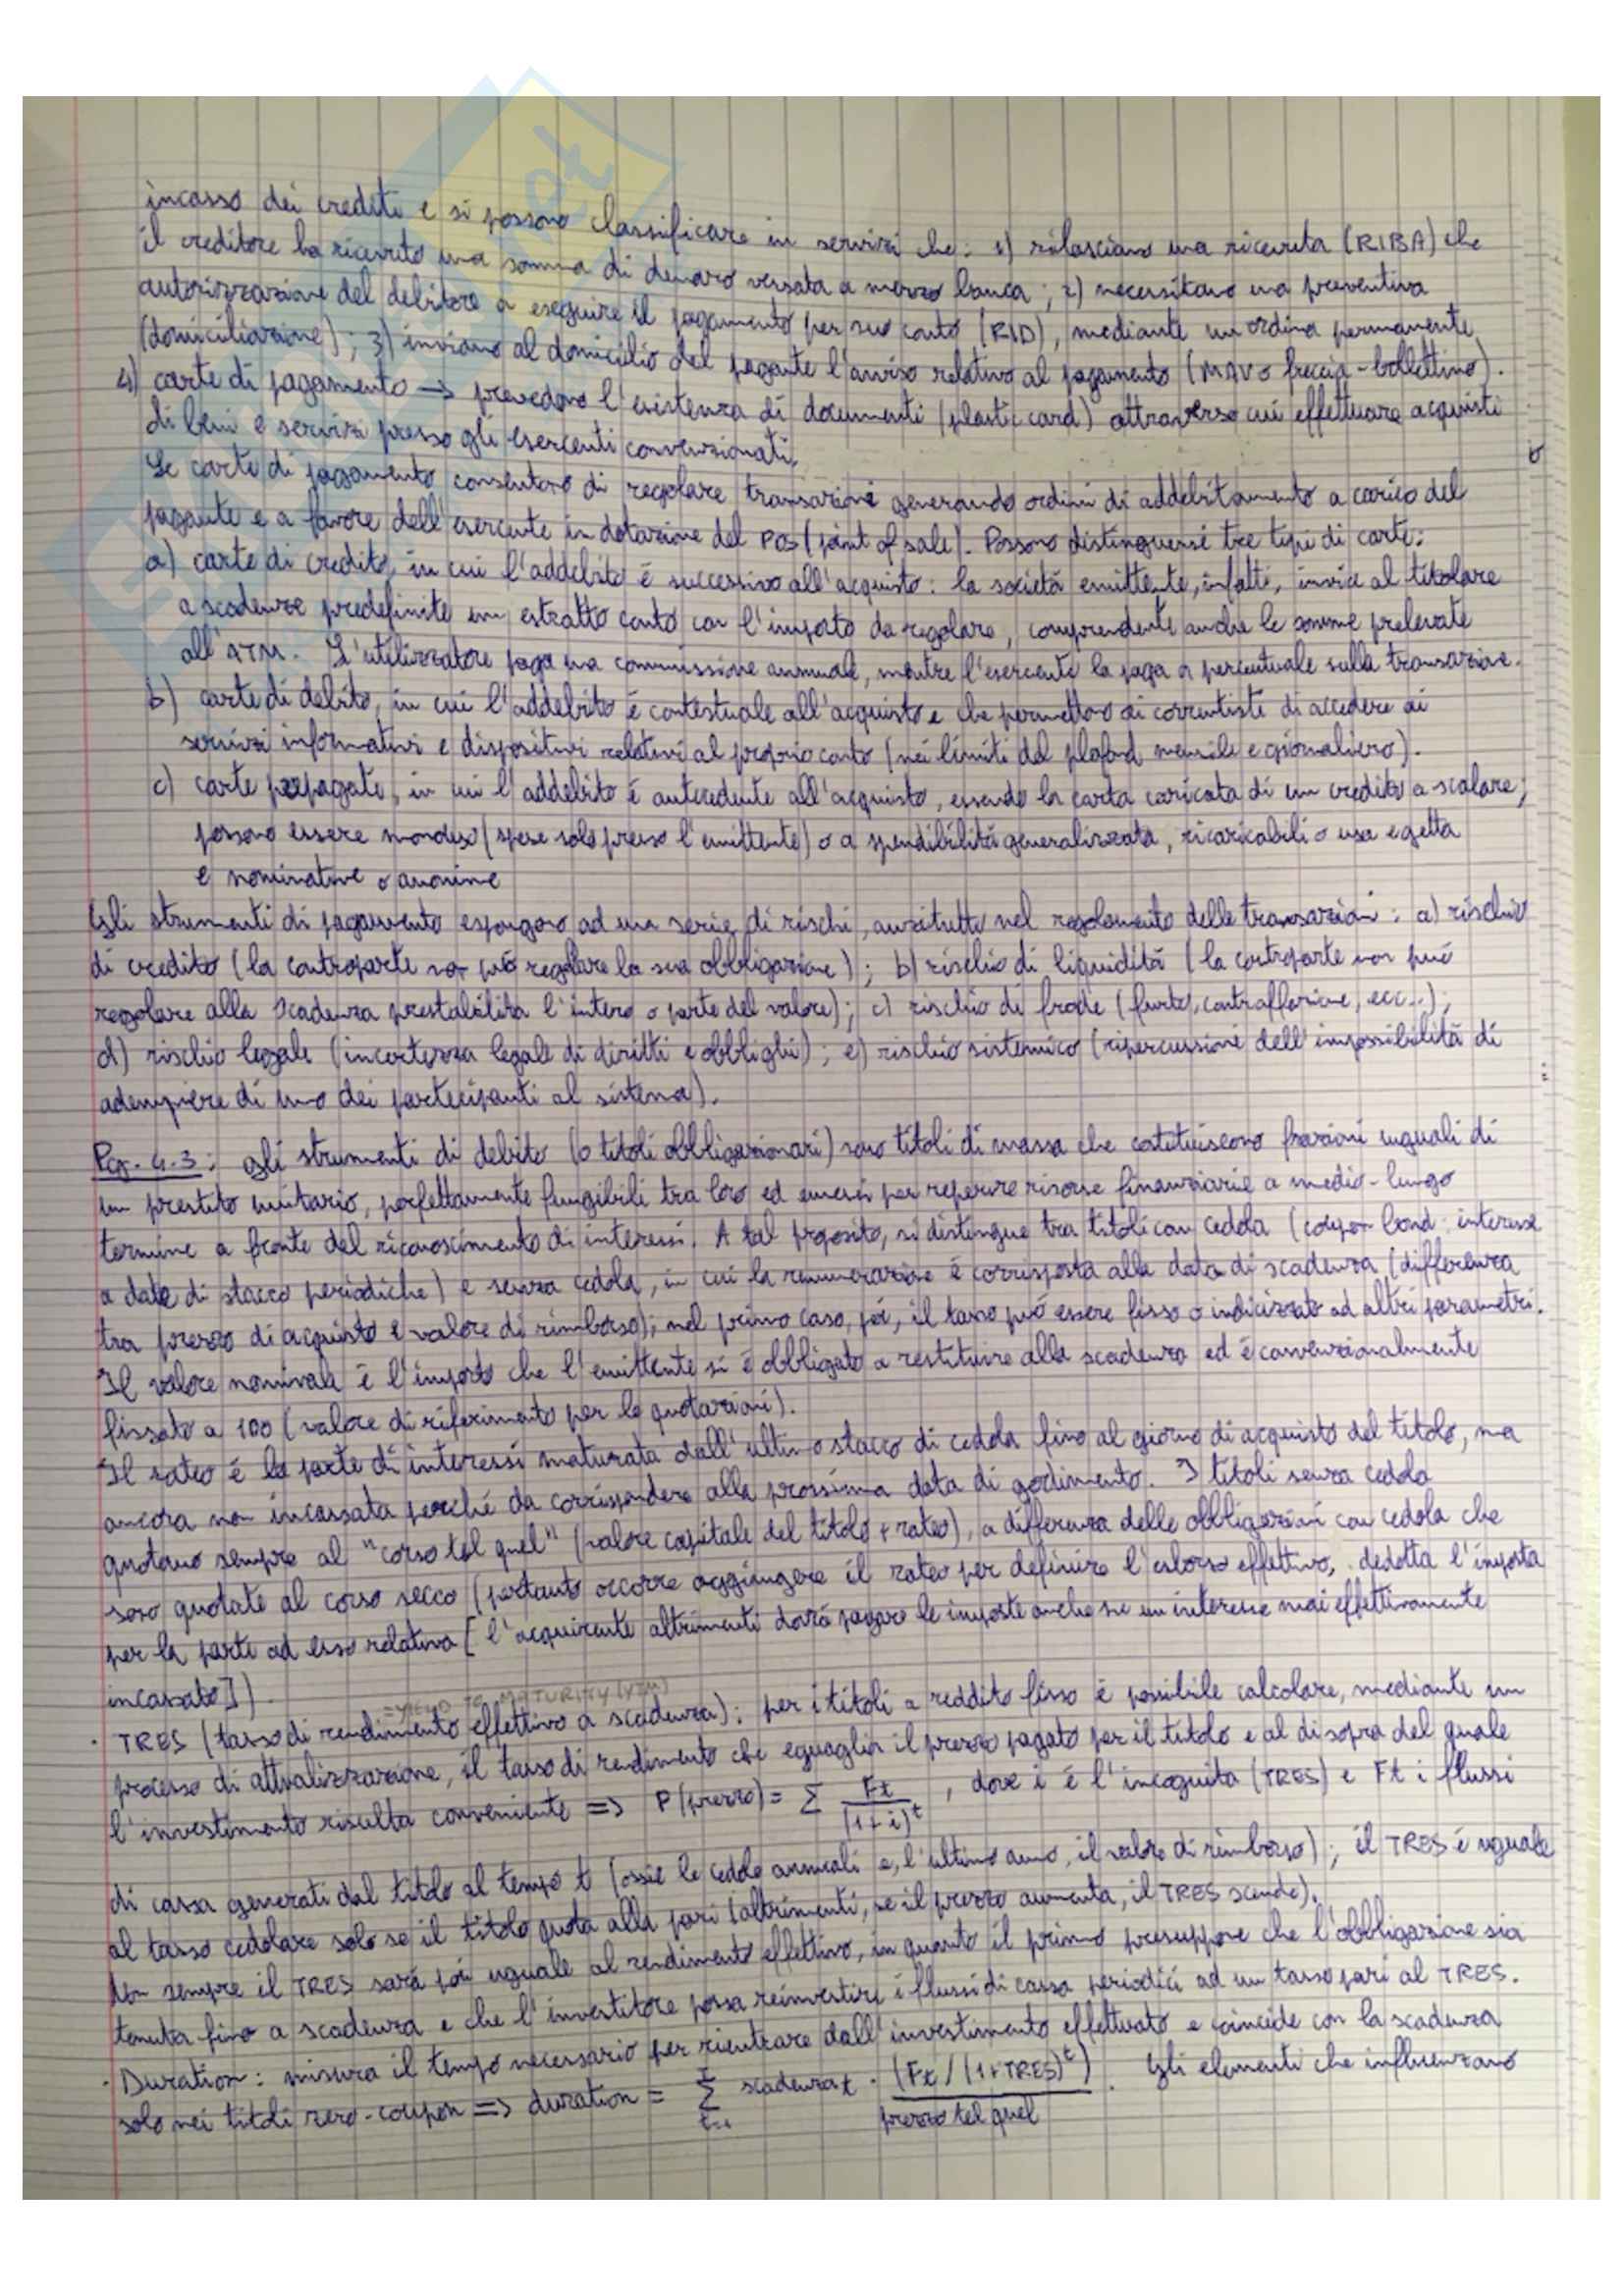 incasso dei crediti e si possono classificare in servizi che: 1) rilasciano una ricevuta (RIBA) che
il creditore ha ricevuto una somma di denaro versata a mezzo banca; 2) necessitano una preventiva
autorizzazione del debitore a eseguire il pagamento per suo conto (RID), mediante un ordine permanente
(domiciliazione); 3) inviano al domicilio del pagante l'avviso relativo al pagamento (MAV o freccia - bollettino).
4) carte di pagamento → prevedono l'esistenza di documenti (plastic card) attraverso cui effettuare acquisti
di beni e servizi presso gli esercenti convenzionati.
Le carte di pagamento consentono di regolare transazioni generando ordini di addebitamento a carico del
pagante e a favore dell'esercente in dotazione del POS (point of sale). Possono distinguersi tre tipi di carte:
a) carte di credito, in cui l'addebito é successivo all'acquisto: la società emittente, infatti, invia al titolare
a scadenze predefinite un estratto conto con l'importo da regolare, comprendente anche le somme prelevate
all'ATM. L'utilizzatore paga una commissione annuale, mentre l'esercente la paga a percentuale sulla transazione.
b) carte di debito, in cui l'addebito é contestuale all'acquisto e che permettono ai correntisti di accedere ai
servizi informativi e dispositivi relativi al proprio conto (nei limiti del plafond mensile e giornaliero).
c) carte prepagate, in cui l'addebito é antecedente all'acquisto, essendo la carta caricata di un credito a scalare;
possono essere monouso (spese solo presso l'emittente) o a spendibilità generalizzata, ricaricabili o usa e getta
e nominative o anonime
Gli strumenti di pagamento espongono ad una serie di rischi, anzitutto nel regolamento delle transazioni: a) rischio
di credito (la controparte non può regolare la sua obbligazione); b) rischio di liquidità (la controparte non può
regolare alla scadenza prestabilita l'intero o parte del valore); c) rischio di frode (furto, contraffazione, ecc..);
d) rischio legale (incertezza legale di diritti e obblighi); e) rischio sistemico (ripercussioni dell'impossibilità di
adempiere di uno dei partecipanti al sistema).
Par. 4.3: gli strumenti di debito (o titoli obbligazionari) sono titoli di massa che costituiscono frazioni uguali di
un prestito unitario, perfettamente fungibili tra loro ed emessi per reperire risorse finanziarie a medio-lungo
termine a fronte del riconoscimento di interessi. A tal proposito, si distingue tra titoli con cedola (coupon bond: interesse
a date di stacco periodiche) e senza cedola, in cui la remunerazione é corrisposta alla data di scadenza (differenza
tra prezzo di acquisto e valore di rimborso); nel primo caso, poi, il tasso può essere fisso o indicizzato ad altri parametri.
Il valore nominale é l'importo che l'emittente si é obbligato a restituire alla scadenza ed é convenzionalmente
fissato a 100 (valore di riferimento per le quotazioni).
Il rateo é la parte di interessi maturata dall'ultimo stacco di cedola fino al giorno di acquisto del titolo, ma
ancora non incassata perché da corrispondere alla prossima data di godimento. I titoli senza cedola
quotano sempre al "corso tel quel" (valore capitale del titolo + rateo), a differenza delle obbligazioni con cedola che
sono quotate al corso secco (pertanto occorre aggiungere il rateo per definire l'esborso effettivo, dedotta l'imposta
per la parte ad esso relativa [l'acquirente altrimenti dovrà pagare le imposte anche su un interesse mai effettivamente
incassato]).
= YIELD TO MATURITY (YTM)
· TRES (tasso di rendimento effettivo a scadenza): per i titoli a reddito fisso é possibile calcolare, mediante un
processo di attualizzazione, il tasso di rendimento che eguaglia il prezzo pagato per il titolo e al di sopra del quale
l'investimento risulta conveniente => P (prezzo) = Σ Ft / (1+i)^t , dove i é l'incognita (TRES) e Ft i flussi
di cassa generati dal titolo al tempo t (ossia le cedole annuali e, l'ultimo anno, il valore di rimborso); il TRES é uguale
al tasso cedolare solo se il titolo quota alla pari (altrimenti, se il prezzo aumenta, il TRES scende).
Non sempre il TRES sarà poi uguale al rendimento effettivo, in quanto il primo presuppone che l'obbligazione sia
tenuta fino a scadenza e che l'investitore possa reinvestire i flussi di cassa periodici ad un tasso pari al TRES.
· Duration: misura il tempo necessario per rientrare dall'investimento effettuato e coincide con la scadenza
solo nei titoli zero-coupon => duration = Σ t=1 scadenza t · (Ft / (1+TRES)^t) / prezzo tel quel . Gli elementi che influenzano